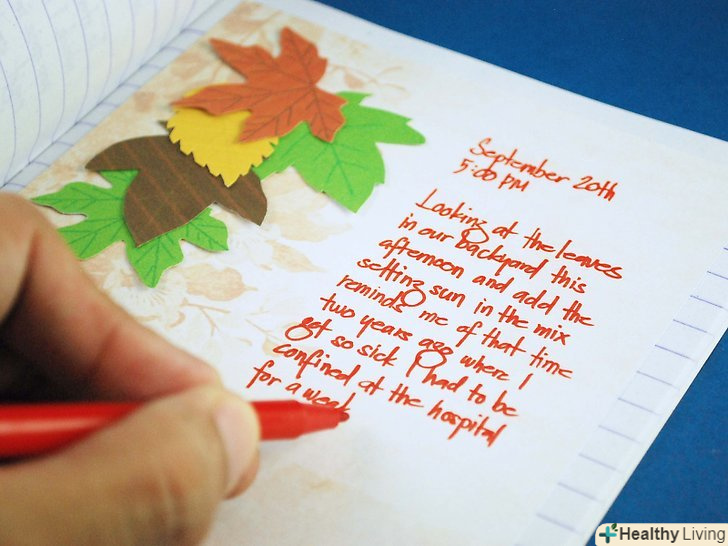 September 20th
5:00 PM
Looking at the leaves
in our backyard this
afternoon and add the
setting sun in the mix
reminds me of that time
two years ago where I
got so sick I had to be
confined at the hospital
for a week
Healthy Living